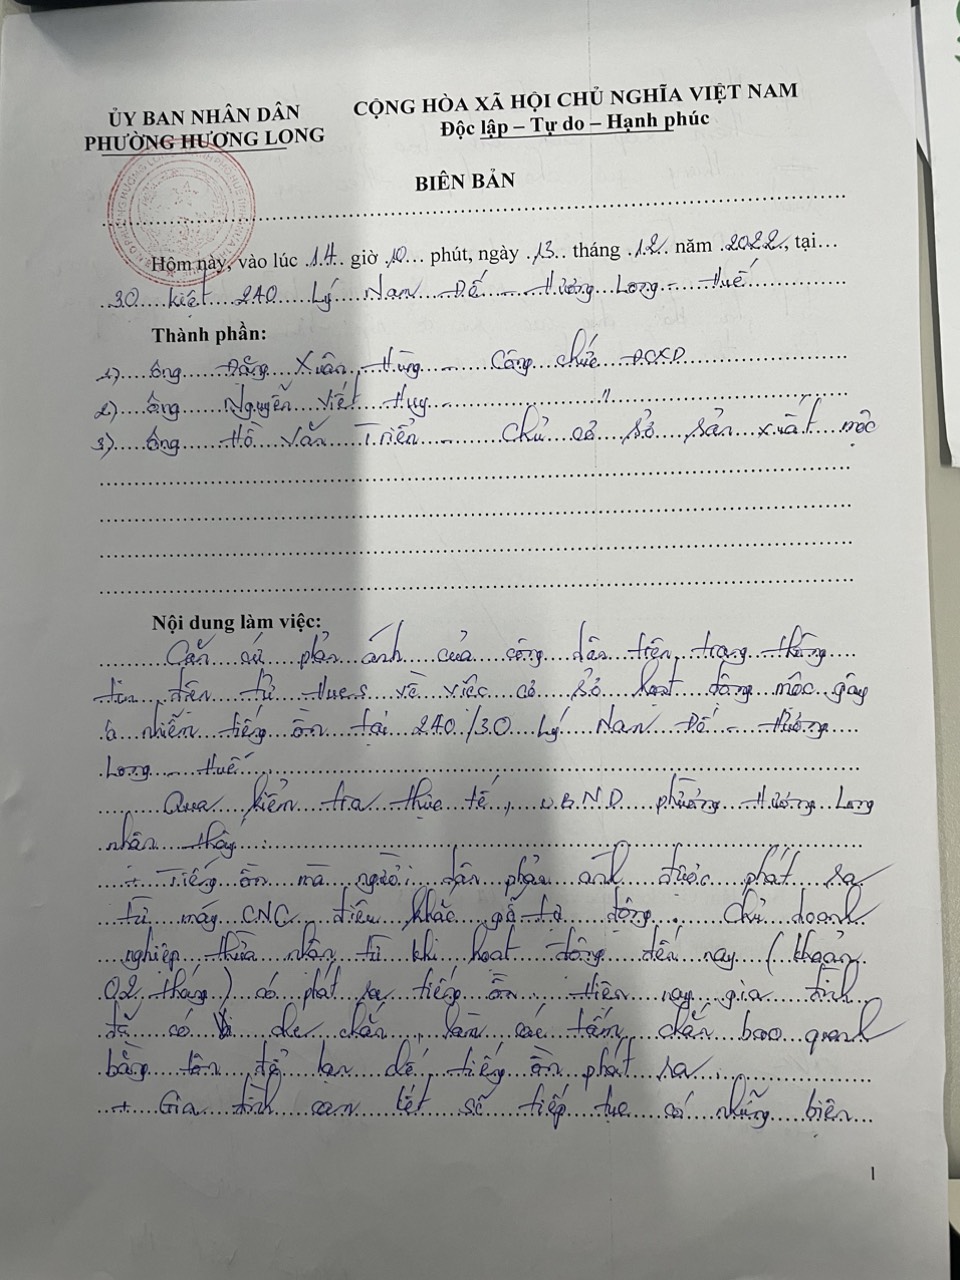 ỦY BAN NHÂN DÂN
PHƯỜNG HƯƠNG LONG
CỘNG HÒA XÃ HỘI CHỦ NGHĨA VIỆT NAM
Độc lập – Tự do – Hạnh phúc
BIÊN BẢN
Hôm nay, vào lúc 14 giờ 10 phút, ngày 13 tháng 12 năm 2022, tại
30 kiệt 240 Lý Nam Đế - Hương Long - Huế
Thành phần:
1) Ông Đặng Xuân Hùng - Công chức ĐCXD
2) Ông Nguyễn Viết Huy - "
3) Ông Hồ Văn Triển - Chủ cơ sở sản xuất mộc
Nội dung làm việc:
Căn cứ phản ánh của công dân trên trang thông
tin điện tử Hues về việc cơ sở hoạt động mộc gây
ô nhiễm tiếng ồn tại 240/30 Lý Nam Đế - Hương
Long - Huế,
Qua kiểm tra thực tế, U.B.N.D phường Hương Long
nhận thấy:
+ Tiếng ồn mà người dân phản ánh được phát ra
từ máy CNC điêu khắc gỗ tự động. Chủ doanh
nghiệp thừa nhận từ khi hoạt động đến nay (khoản
02 tháng) có phát ra tiếng ồn, hiện nay gia đình
đã có che chắn, làm các tấm chắn bao quanh
bằng tôn để hạn chế tiếng ồn phát ra.
+ Gia đình cam kết sẽ tiếp tục có những biện
1